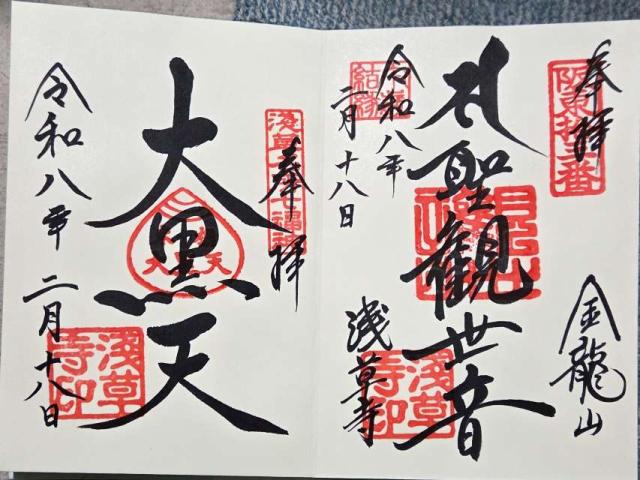 奉拝
阪東拾三番
金龍山
聖観世音
浅草寺
浅草寺印
令和八年
二月十八日
結縁
奉拝
大黒天
大黒天
浅草寺印
令和八年二月十八日